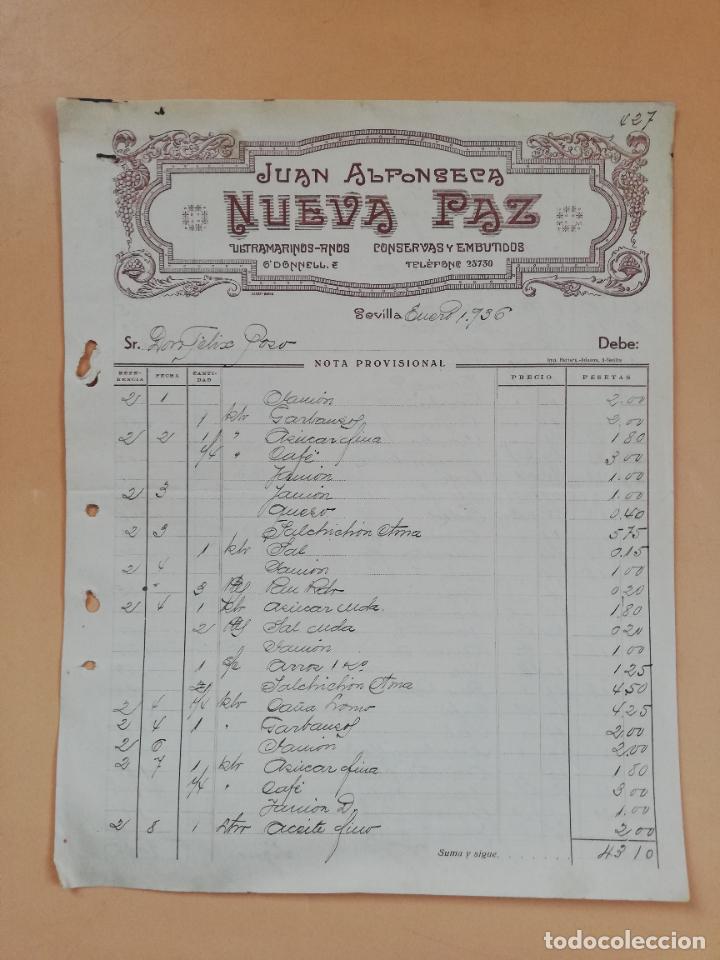 427
JUAN ALFONSECA
NUEVA PAZ
ULTRAMARINOS-FINOS CONSERVAS Y EMBUTIDOS
O'DONNELL, 2 TELÉFONO 23730
Sevilla Enero 1.936
Sr. Don Felix Poso Debe:
NOTA PROVISIONAL
REFERENCIA FECHA CANTIDAD PRECIO PESETAS
2 1 Jamón 2.00
1 klo Garbansos 2.00
2 2 1 " Azúcar fina 1.80
1/4 " Café 3.00
Jamón 1.00
2 3 Jamón 1.00
Queso 0.40
2 3 Salchichón 5.75
1 klo Sal 0.15
2 4 Jamón 1.00
" 3 Pan 0.20
2 4 1 klo Azúcar 1.80
2 Sal 0.20
Jamón 1.00
1 Arros 1.25
Salchichón 4.50
2 4 1/4 klo Caña Lomo 4.25
2 4 1 " Garbansos 2.00
2 6 Jamón 2.00
2 7 1 klo Azúcar fina 1.80
1/4 " Café 3.00
Jamón D. 1.00
2 8 1 Ltro Aceite fino 2.00
Suma y sigue 43 10
todocoleccion
todocoleccion.net